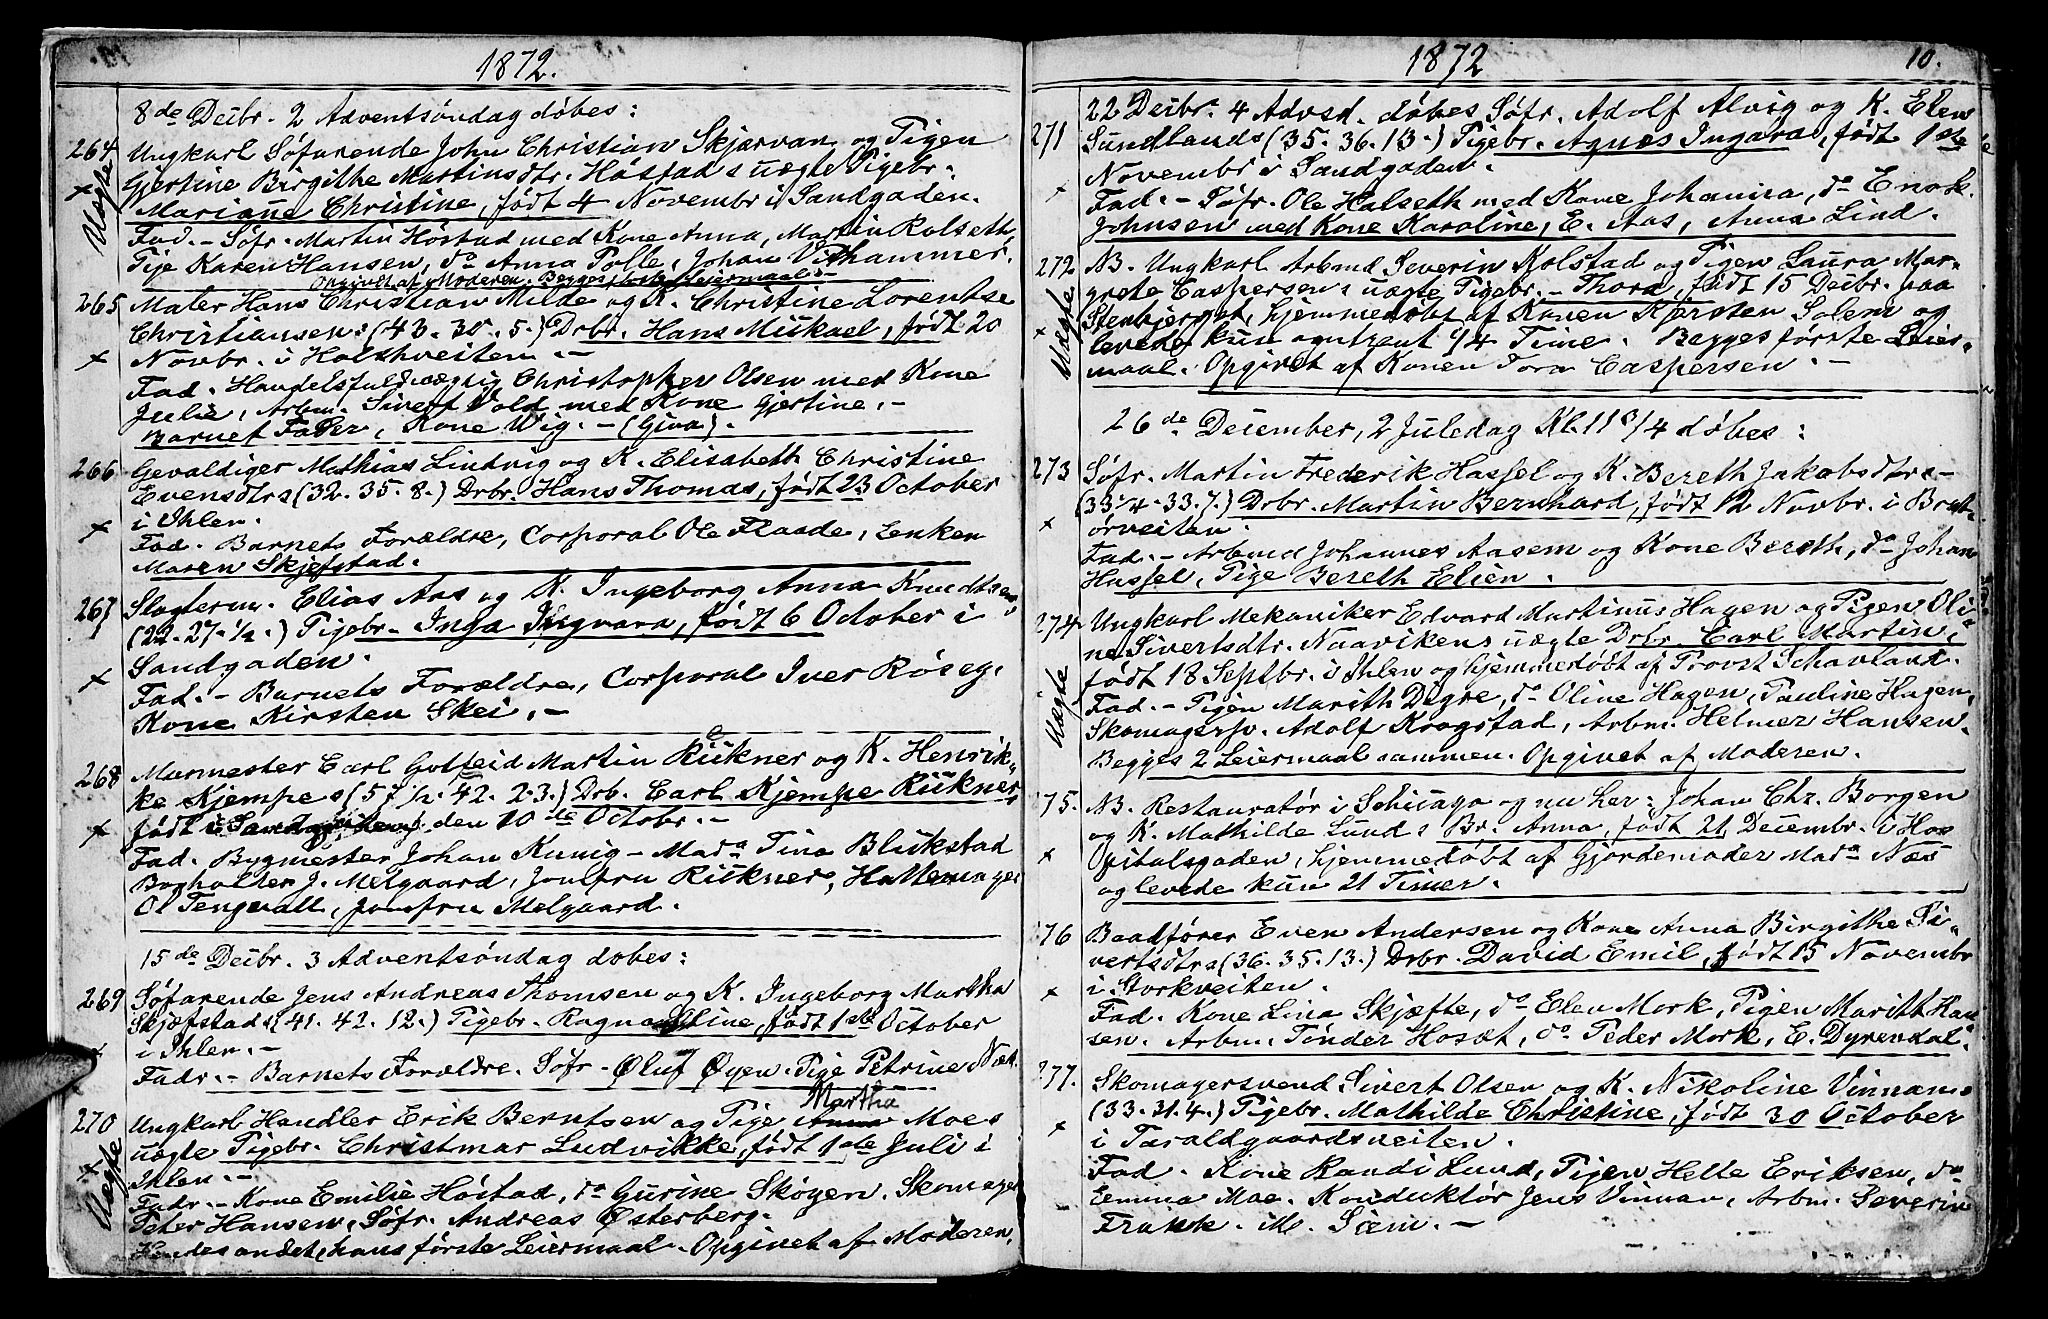 1872.
8de Decbr. 2 Adventsöndag döbes:
264 Ungkarl Söfarende John Christian Skjærvan og Pigen
Gjertine Birgithe Martinsdtr. Höstads uægte Pigebr.
Uægte
Marianne Christine, födt 4 Novembr i Sandgaden.
Fad. - Söfr. Martin Höstad med Kone Anna, Martin Rolseth,
Pige Karen Hansen, do Anna Polle, Johan Vithammer.
Opgivet af Moderen. Begges förste Leiermaal. -
265 Maler Hans Christian Milde og K. Christine Lorentse
Christiansens (43. 30. 5.) Drbr. Hans Mickael, födt 20
Novbr. i
Fad. Handelsfuldmægtig Christopher Olsen med Kone
Julie, Arbm. Sivert Vold med Kone Gjertine. -
Barnet Fader, Kone Wig. -
266 Gevaldiger Mathias Lindvig og K. Elisabeth Christine
Evensdtrs (32. 35. 8.) Drbr. Hans Thomas, födt 23 October
i Ihlen.
Fad. Barnets Forældre, Corporal Ole Flaade, Enken
Maren Skjefstad.
267 Slagterm. Elias Aas og K. Ingeborg Anna Knudtsens
(22. 27. 1/2.) Pigebr. Inga Ingvara, födt 6 October i
Sandgaden.
Fad. - Barnets Forældre, Corporal Iver Röseg,
Kone Kirsten Skei. -
268 Murmester Carl Gotfeid Martin Rückner og K. Henrik-
ke Kjempes (57 1/2. 42. 2.3.) Drb. Carl Kjempe Rückner,
födt i den 10de Octobr. -
Fad. Bygmester Johan Kunig - Mada Tina Blikstad
Bogholter J. Melgaard, Jomfru Rückner, Hattemager
Ol Tengvall, Jomfru Melgaard.
15de Decbr. 3 Adventsöndag döbes:
269 Söfarende Jens Andreas Thomsen og K. Ingeborg Martha
Skjefstads (41. 42. 12.) Pigebr. Ragna Stine, födt 1ste October
i Ihlen. -
Fadr. - Barnets Forældre. Söfr - Oluf Öyen. Pige Petrine
Martha
270 Ungkarl Handler Erik Berntsen og Pige Anna Moes
uægte Pigebr. Christmar Ludvikke, födt 1ste Juli i
Ihlen. -
Uægte
Fadr. - Kone Emilie Höstad, do Gurine Skogen. Skomager
Peter Hansen, Söfr. Andreas Österberg.
Hendes andet, hans förste Leiermaal. Opgivet af Moderen.
1872
10.
22 Decbr. 4 Advsd. döbes Söfr. Adolf Alvig og K. Elen
271 Sundlands (35. 36. 13.) Pigebr. Agnes Ingara, födt 1ste
Novembr i Sandgaden.
Fad. - Söfr. Ole Halseth med Kone Johanna, do Enok
Johnsen med Kone Karoline, E. Aas, Anna Lind.
272 NB. Ungkarl Arbmd Severin Kolstad og Pigen Laura Mar-
grete Caspersens uægte Pigebr. - Thora, födt 15 Decbr. paa
Uægte
Stenbjerget, hjemmedöbt af Konen Kjersten Solem og
levede kun omtrent 1/4 Time. Begges förste Leier-
maal. Opgivet af Konen Tora Caspersen. -
26de December, 2 Juledag Kl. 11 3/4 döbes:
273 Söfr. Martin Frederik Hassel og K. Bereth Jakobsdtrs -
(33 1/4. 33. 7.) Drbr. Martin Bernhard, födt 12 Novbr. i Brat-
örveiten.
Fad. - Arbmd Johannes Aasem og Kone Bereth, do Johan
Hassel, Pige Bereth Elien.
274 Ungkarl Mekaniker Edvard Martinus Hagen og Pigen Oli-
ne Sivertsdtr. Naavikens uægte Drbr. Carl Martin,
födt 18 Septbr. i Ihlen og hjemmedöbt af Provst Schavland.
Uægte
Fad. - Pigen Marith Digre, do Oline Hagen, Pauline Hagen,
Skomagersv. Adolf Kragstad, Arbm. Helmer Hansen.
Begges 2 Leiermaal sammen. Opgivet af Moderen.
75. NB. Restauratör i Schicago og nu her: Johan Chr. Borgen
og K. Mathilde Lunds Br. Anna, födt 21 Decembr. i Hos
pitalsgaden, hjemmedöbt af Gjordemoder Mada Næs
og levede kun 21 Timer.
76 Baadförer Even Andersen og Kone Anna Birgithe Si-
vertsdtrs (36. 35. 13.) Drbr. David Emil, födt 15 Novembr
i Storkveiten.
Fad. Kone Lina Skjefte, do Elen Mork, Pigen Marith Han
sen. Arbm. Tönder Hoset, do Peder Mork, E. Dyrendal.
277. Skomagersvend Sivert Olsen og K. Nikoline Vinnans
(33. 31. 4.) Pigebr. Mathilde Christine, födt 30 October
i Taraldgaardsveiten.
Fad. Kone Randi Lund, Pigen Helle Eriksen, do
Emma Moe. Konduktör Jens Vinnan, Arbm. Severin
Frank. M. Siem. -